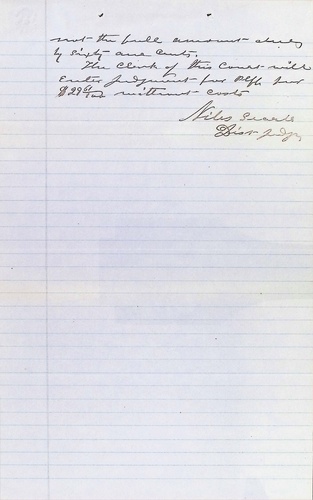 not the full amount due
by sixty one cents.
The Clerk of this Court will
enter judgment for Plff for
without costs
Niles Searls
Dist Judge